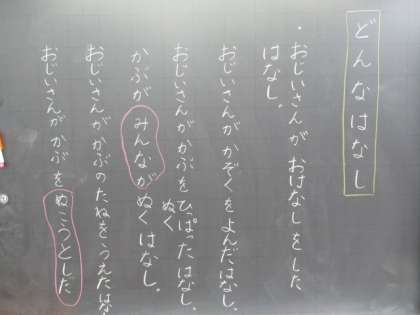 どんなはなし
・おじいさんが おはなしをした
はなし。
おじいさんが かぞくをよんだはなし、
おじいさんがかぶをひっぱったはなし、
ぬく
かぶが みんながぬくはなし。
おじいさんがかぶのたねをうえたはな
おじいさんがかぶをぬこうとした